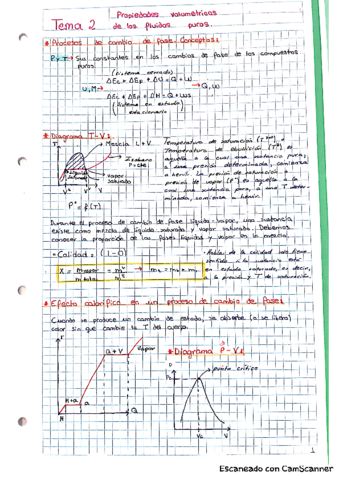 Tema 2
Propiedades volumétricas
de los fluidos puros.
* Procesos de cambio de fase. Conceptos:
P y T → Son constantes en los cambios de fase de los compuestos
puros.
(Sistema cerrado)
ΔEc + ΔEp + ΔU = Q + W
U, H
Q, W
ΔEc + ΔEp + ΔH = Q + Ws
(Sistema en estado
estacionario)
* Diagrama T-V:
Mezcla L+V.
T
P = cte
Vapor
saturado
V
P° = f(T)
Temperatura de saturación
Temperatura de ebullición
aquella a la cual una sustancia pura,
a una presión determinada, comienza
a hervir. La presión de saturación
presión de vapor (P°) es aquella a la
cual una sustancia pura, a una T deter-
minada, comienza a hervir.
Durante el proceso de cambio de fase líquido-vapor, una sustancia
existe como mezcla de líquido saturado y vapor saturado. Debemos
conocer la proporción de las fases líquida y vapor en la mezcla.
- Calidad: (1-0)
Hablar de la calidad solo tiene
sentido si la sustancia está
en estado saturado, es decir,
a la presión y T de saturación.
* Efecto calorífico en un proceso de cambio de fase:
Cuando se produce un cambio de estado, se absorbe (o se libera)
calor sin que cambie la T del cuerpo.
T
a+V
Vapor
H+a
a
H
Q
* Diagrama P-V:
P
punto crítico
Vc
V
1
Escaneado con CamScanner